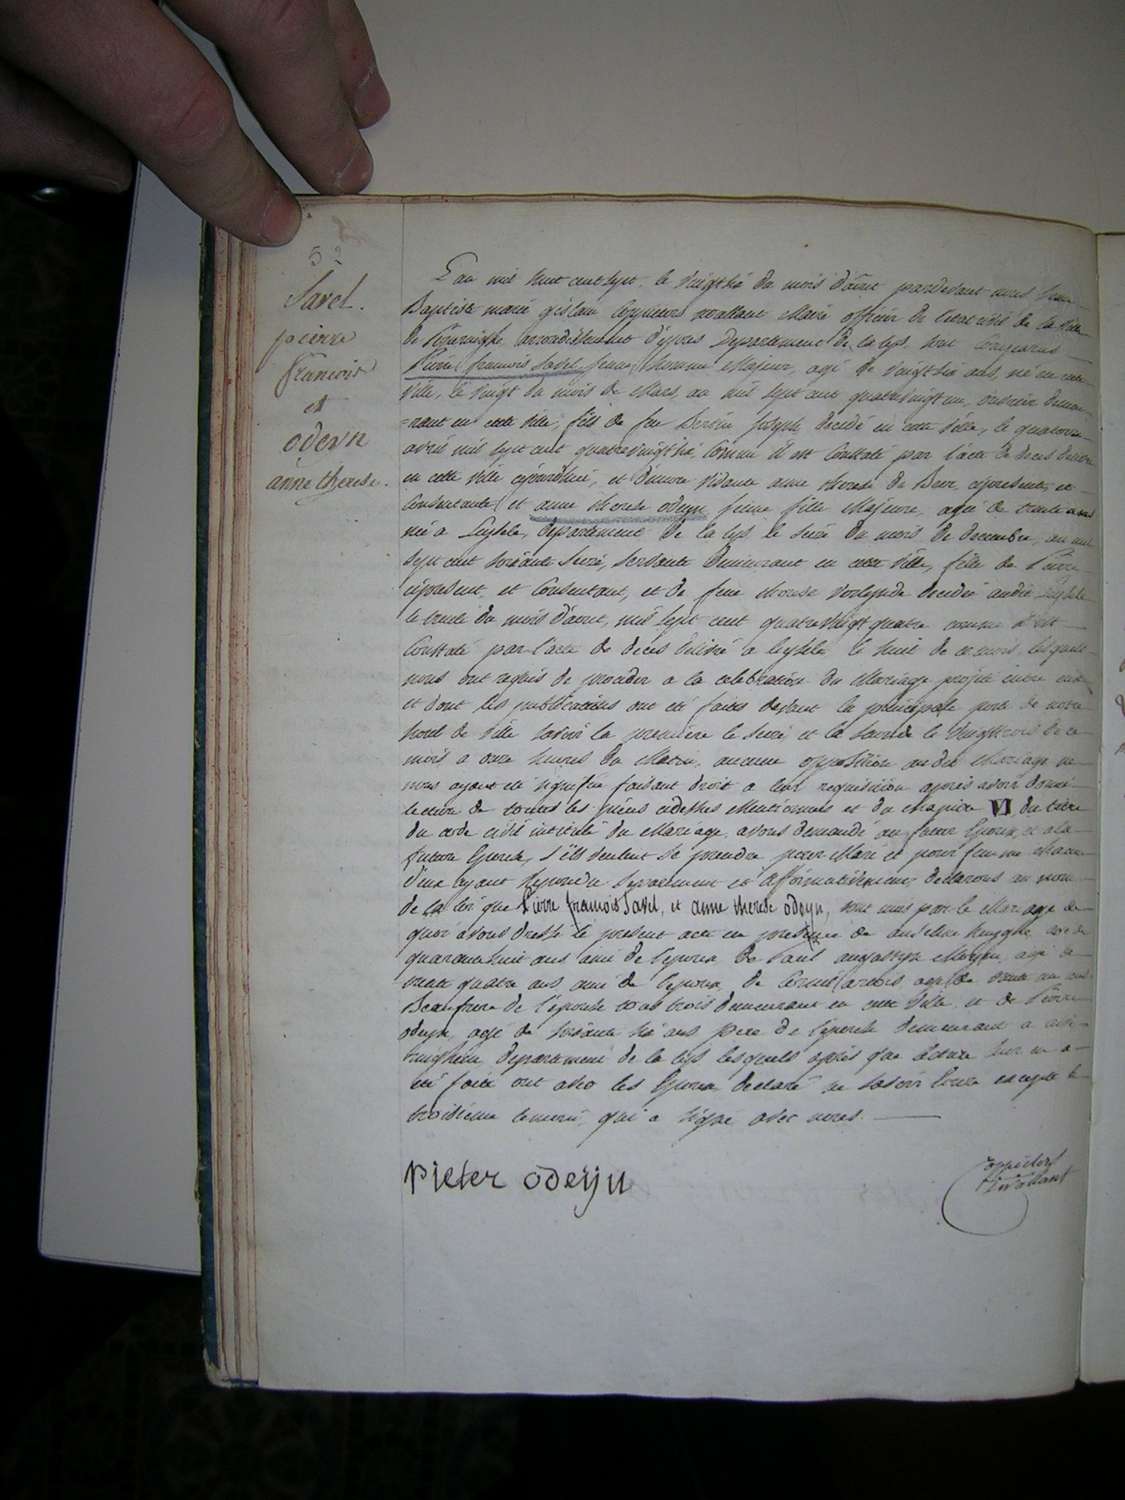 52
Savel.
pierre
francois
et
odeyn
anne therese.
L'an mil huit cent sept, le vingt six du mois d'aout pardevant nous Jean
Baptiste marie gislain Maire officier de l'etat civil de la ville
de arrondissement d'ypres Departement de la Lys, sont comparus
Pierre francois Savel jeune homme Majeur, agé de vingt six ans, né en cette
ville, le vingt du mois de Mars, an mil sept cent quatrevingt un, demeu-
=rant en cette ville, fils de feu Joseph decedé en cette ville, le quatorze
avril mil sept cent quatrevingt six, comme il est constaté par l'acte de deces delivré
en cette ville et d'encore vivante anne therese de Beir, cipresente et
consentante, et anne therese odeyn jeune fille Majeure, agée de trente ans
née a departement de la Lys le seize du mois de decembre, an mil
sept cent soixante seize, servante demeurant en cette ville, fille de Pierre
cipresent, et consentant, et de feue therese decedée audit
le trente du mois d'aout, mil sept cent quatrevingt quatre comme il est
constaté par l'acte de deces delivré a le huit de ce mois, lesquels
nous ont requis de proceder a la celebration du Mariage projeté entre eux
et dont les publications ont été faites devant la principale porte de notre
hotel de ville savoir la premiere le seize et la seconde le vingt trois de ce
mois a onze heures du Matin, aucune opposition audit Mariage ne
nous ayant été signifiée faisant droit a leur requisition apres avoir donné
lecture de toutes les pieces cidessus Mentionnées et du chapitre VI du titre
du code civil intitulé du Mariage, avons demandé au futur Epoux, et a la
future Epouse, s'ils veulent se prendre pour Mari et pour femme chacun
d'eux ayant repondu separement et affirmativement, declarons au nom
de la loi que Pierre francois Savel, et anne therese odeyn, sont unis par le Mariage de
quoi avons dressé le present acte en presence de anselme huyghe, agé de
quarante huit ans ami de l'epoux, de Paul agé de
trente quatre ans ami de l'epoux, de agé de trente un ans
Beaufrere de l'epouse tous trois demeurant en cette ville, et de Pierre
odeyn agé de soixante six ans pere de l'epouse demeurant a
departement de la Lys lesquels après que lecture leur en a
été faite ont avec les Epoux declaré ne savoir ecrire excepté le
temoin, qui a signé avec nous.
pieter odeijn